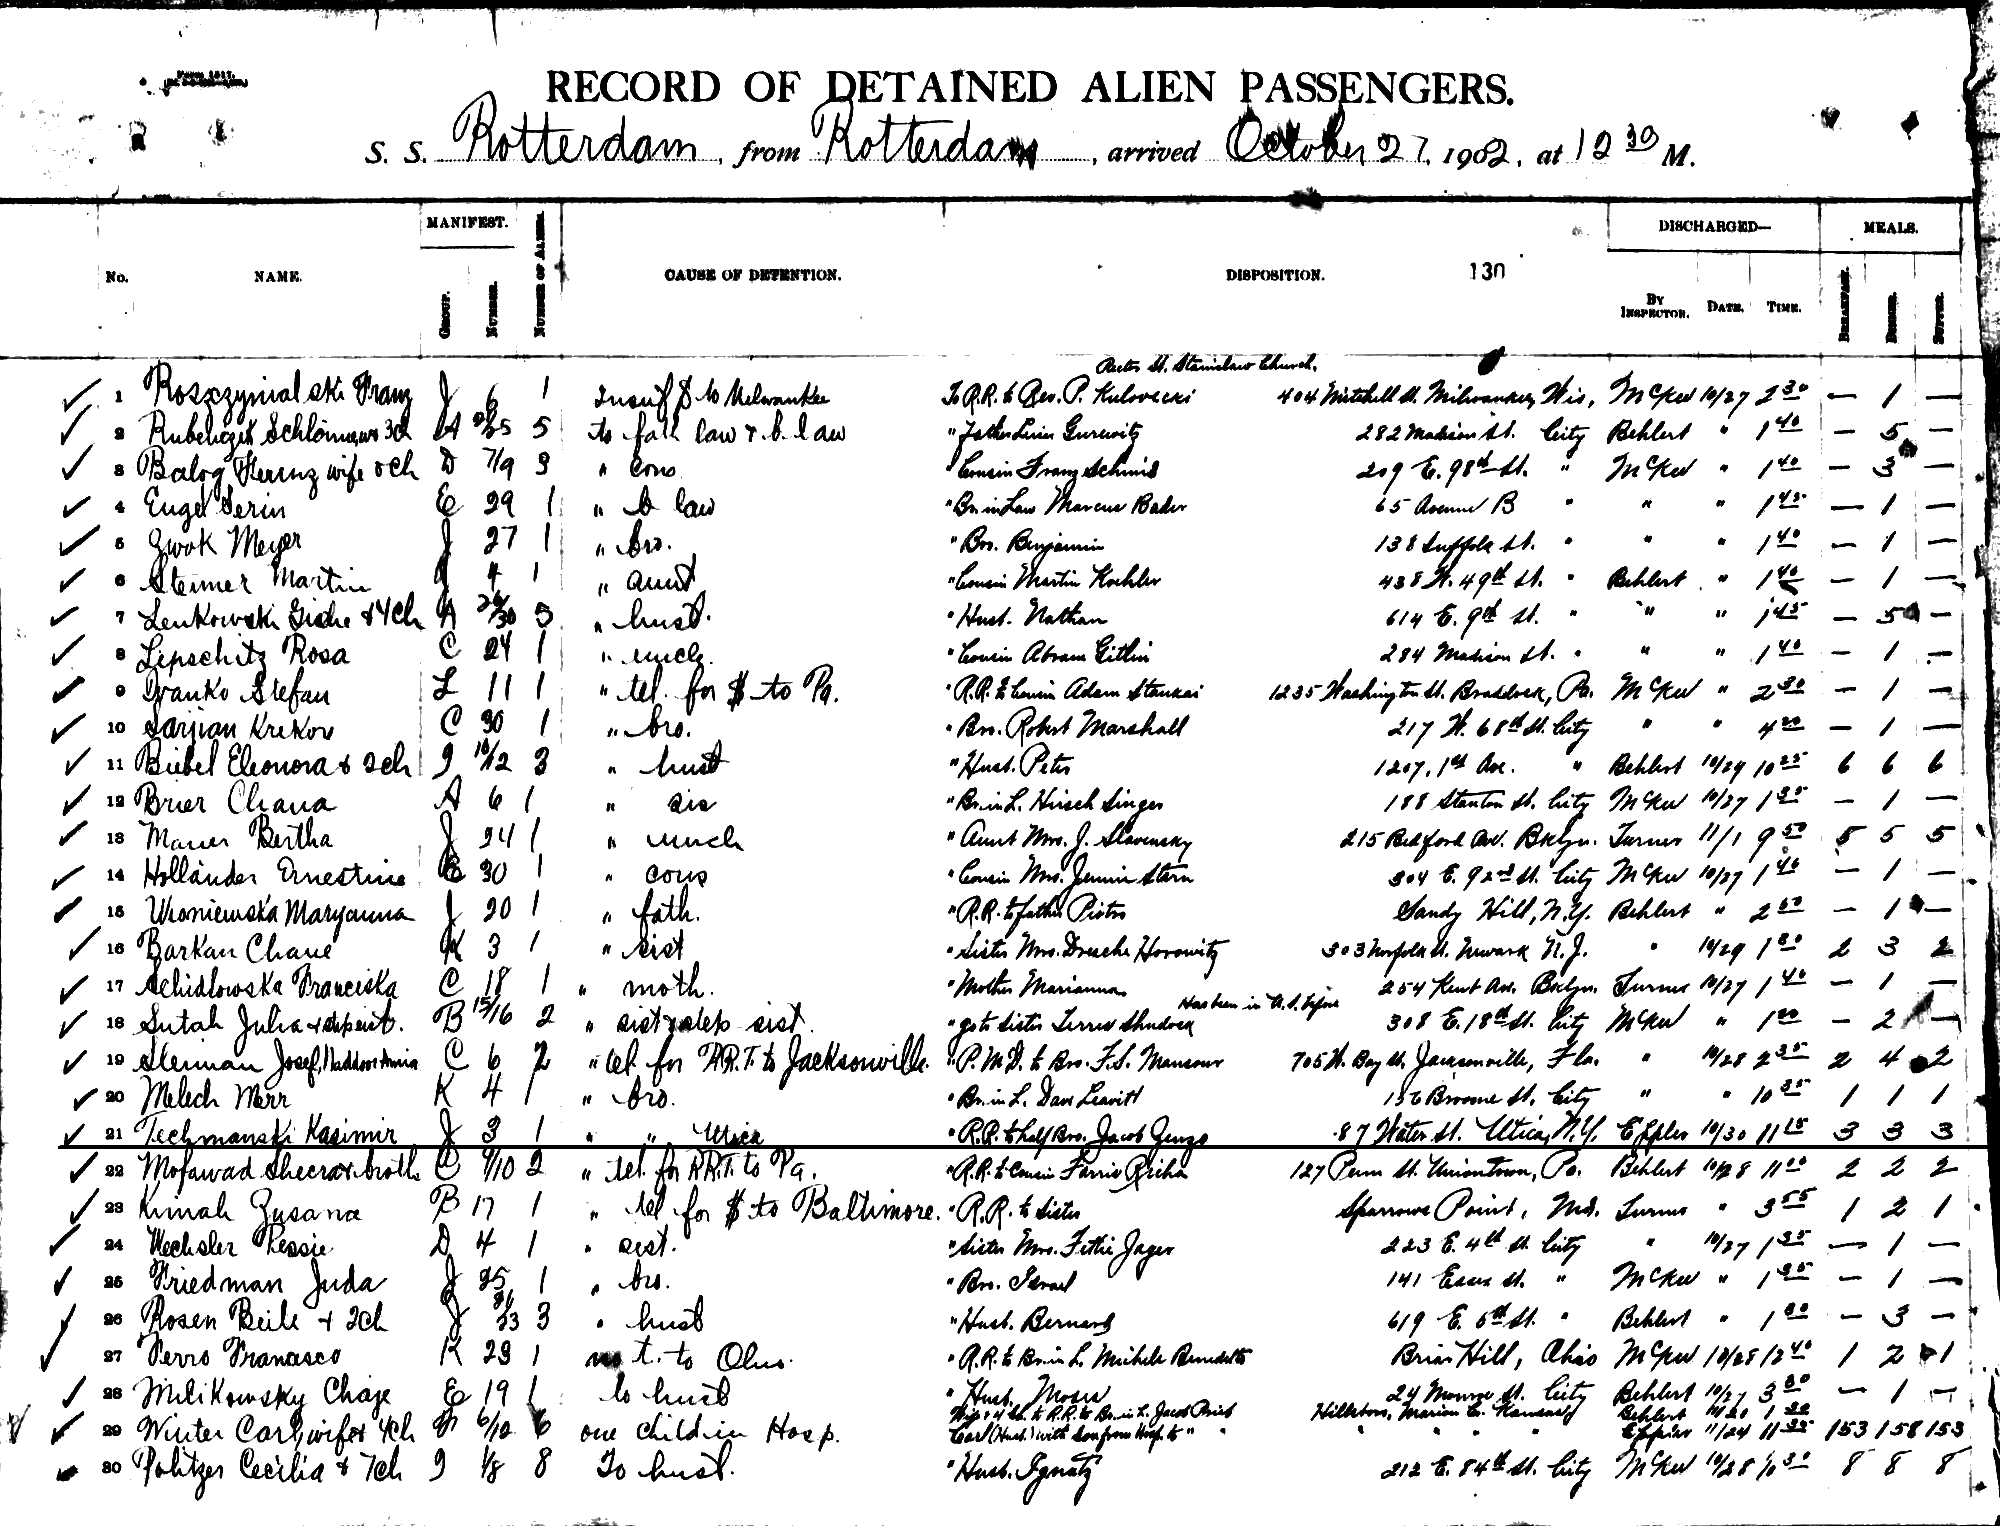 Form 1517.
RECORD OF DETAINED ALIEN PASSENGERS.
S. S. Rotterdam, from Rotterdam, arrived October 27, 1902, at 12 30 M.
No. NAME. MANIFEST. GROUP. NUMBER. NUMBER OF ALIENS. CAUSE OF DETENTION. DISPOSITION. 130 DISCHARGED— BY INSPECTOR. DATE. TIME. MEALS. BREAKFAST. DINNER. SUPPER.
St. Stanislaw Church,
1 Roszczynialski Franz J 6 1 Insuf $ to Milwaukee To R.R. to Rev. P. Kulovecki 404 Mitchell St. Milwaukee, Wis, McKee 10/27 2 30 — 1 —
2 A 5 to fath law & b. law " 282 Madison St. City Behlert " 1 40 — 5 —
3 Balog wife & ch D 7/9 3 " cous " Cousin Franz Schmid 209 E. 98th St. " McKee " 1 40 — 3 —
4 Engel Serin E 29 1 " b law " Br. in Law Marcus Bader 65 Avenue B " " " 1 45 — 1 —
5 Zwok Meyer J 27 1 " bro. " Bro. Benjamin 138 Suffolk St. " " " 1 40 — 1 —
6 Steimer Martin J 4 1 " aunt " Cousin Martin Koehler 438 W. 49th St. " Behlert " 1 40 — 1 —
7 Lenkowski Gishe & 4 ch A 26/30 5 " husb. " Husb. Nathan 614 E. 9th St. " " " 1 45 — 5 —
8 Lepschitz Rosa C 24 1 " uncle " Cousin Abram Gitlin 284 Madison St. " " " 1 40 — 1 —
9 Ivanko Stefan L 11 1 " tel. for $ to Pa. " R.R. to Cousin Adam Stankai 1235 Washington St. Braddock, Pa. McKee " 2 30 — 1 —
10 Sarjian Krekor C 30 1 " bro. " Bro. Robert Marshall 217 W. 68th St. City " " 4 00 — 1 —
11 Biebel Eleonora & 2 ch I 10/12 3 " husb " Husb. Peter 1207, 1st Ave. " Behlert 10/29 10 25 6 6 6
12 Brier Chana A 6 1 " sis " Br. in L. Hirsch Singer 188 Stanton St. City McKee 10/27 1 35 — 1 —
13 Maner Bertha J 24 1 " uncle " Aunt Mrs. J. Slavensky 215 Bedford Ave. Bklyn. Turner 11/1 9 50 5 5 5
14 Holländer Ernestine E 30 1 " cous " Cousin Mrs. Jennie Stern 304 E. 92nd St. City McKee 10/27 1 40 — 1 —
15 Wroniewska Maryanna J 20 1 " fath. " R.R. to father Piotro Sandy Hill, N.Y. Behlert " 2 — 1 —
16 Barkan Chane K 3 1 " sist " Sister Mrs. Dreische Horowitz 303 Norfolk St. Newark N.J. " 10/29 1 2 3 2
17 Schidlowska Franciska C 18 1 " moth. " Mother Marianna 254 Kent Ave. Bklyn. Turner 10/27 1 40 — 1 —
Has been in U.S. before
18 Sutah Julia & B 15/16 2 " sist & step sist. " go to Sister 308 E. 18th St. City McKee " 1 — 2 —
19 Sleiman Josef, C 6 2 " tel for R.R.T. to Jacksonville. " P.M.D. to Bro. F.S. Mansour 705 W. Bay St. Jacksonville, Fla. " 10/28 2 35 2 4 2
20 Melech Merr K 4 1 " bro. " Br. in L. Dave Leavitt Broome St. City " " 10 35 1 1 1
21 Techmanski Kasimir J 3 1 " " Utica " R.R. to half Bro. Jacob 87 Water St. Utica, N.Y. Eppler 10/30 11 15 3 3 3
22 Mofawad Sheera & broth C 9/10 2 " tel. for R.R.T. to Pa. " R.R. to Cousin Farris Richa 127 Penn St. Uniontown, Pa. Behlert 10/28 11 2 2 2
23 Kimah Zusana B 17 1 " tel for $ to Baltimore. " R.R. to Sister Sparrows Point, Md. Turner " 3 55 1 2 1
24 Wechsler Pessie D 4 1 " sist. " Sister Mrs. Fethie Jager 223 E. 4th St. City " 10/27 1 35 — 1 —
25 Friedman Juda J 25 1 " bro. " Bro. Israel 141 Essex St. " McKee " 1 35 — 1 —
26 Rosen Beile & 2 ch J 21/23 3 " husb " Husb. Bernard 619 E. 6th St. " Behlert " 1 — 3 —
27 Perro Franasco K 23 1 no t. to Ohio. " R.R. to Br. in L. Michele Benedetto Briar Hill, Ohio McKee 10/28 12 40 1 2 1
28 Milikowsky Chaje E 19 1 to husb " Husb. Moses 24 Monroe St. City Behlert 10/27 3 — 1 —
29 Winter Carl, wife & 4 ch 6 one child in Hosp. Wife & 4 ch. to R.R. to Br. in L. Jacob Hillsboro, Marion C. Kansas Behlert
Carl (Husb.) with son from Hosp. to " " " " " Eppler 11/24 11 35 153 158 153
30 Politzer Cecilia & 7 ch I 1/8 8 To husb. " Husb. Ignatz 212 E. 84th St. City McKee 10/28 10 30 8 8 8